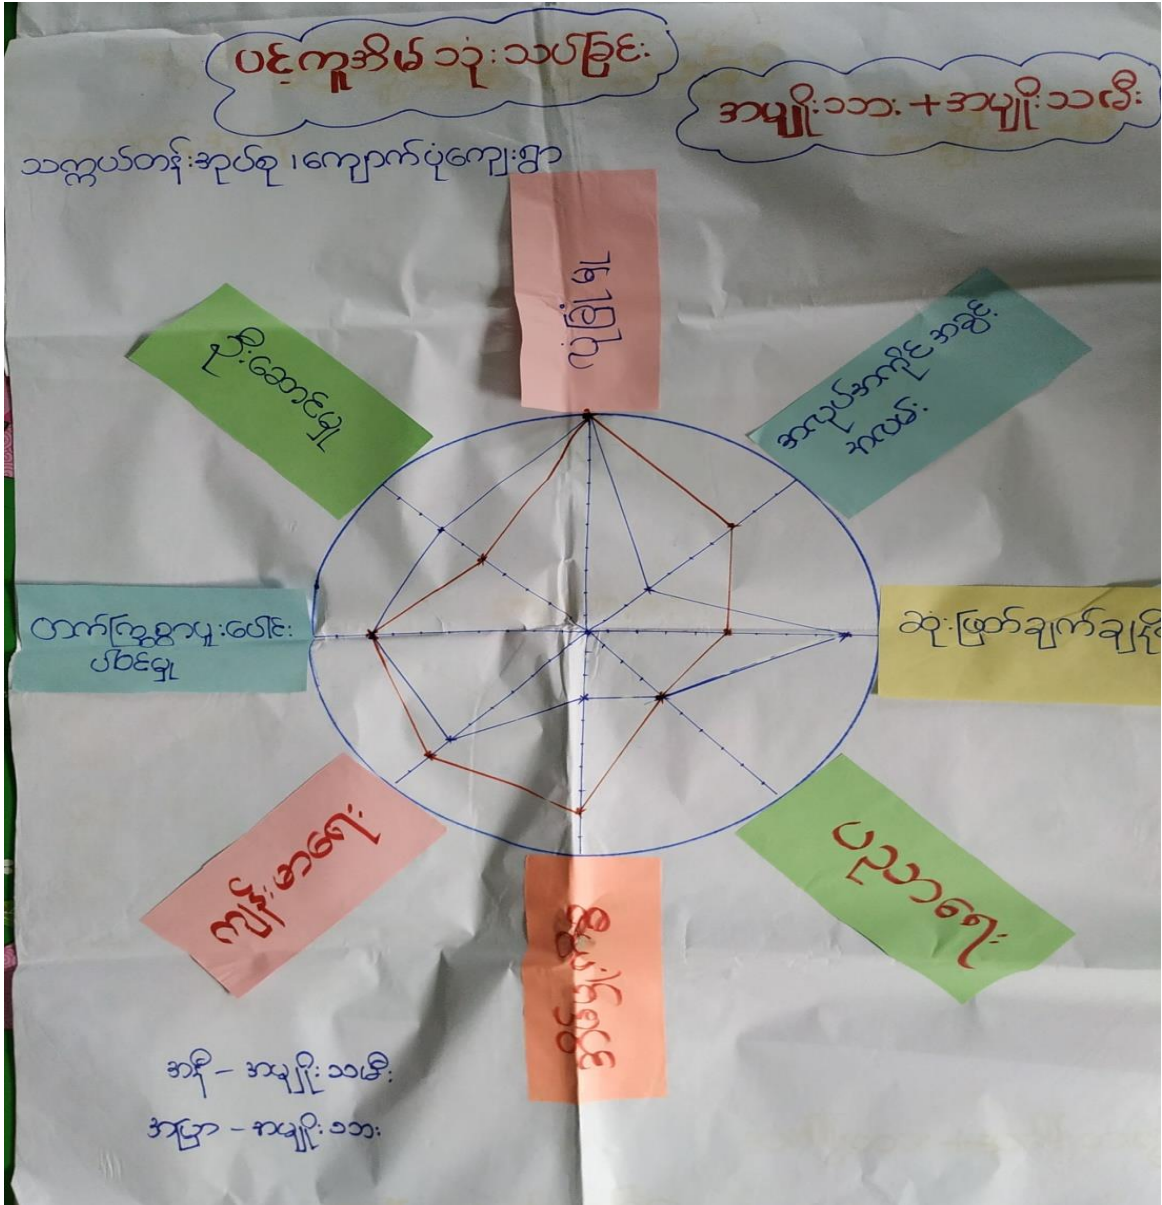 ပင့်ကူအိမ်သုံးသပ်ခြင်း
အမျိုးသား + အမျိုးသမီး
သက္ကယ်တန်းအုပ်စု ၊ ကျောက်ပုံကျေးရွာ
လုံခြုံရေး
အလုပ်အကိုင် အခွင့်
အလမ်း
ဆုံးဖြတ်ချက်ချနို
ပညာရေး
ကျန်းမာရေး
တက်ကြွစွာပူးပေါင်း
ပါဝင်မှု
ဦးဆောင်မှု
အနီ - အမျိုးသမီး
အပြာ - အမျိုးသား